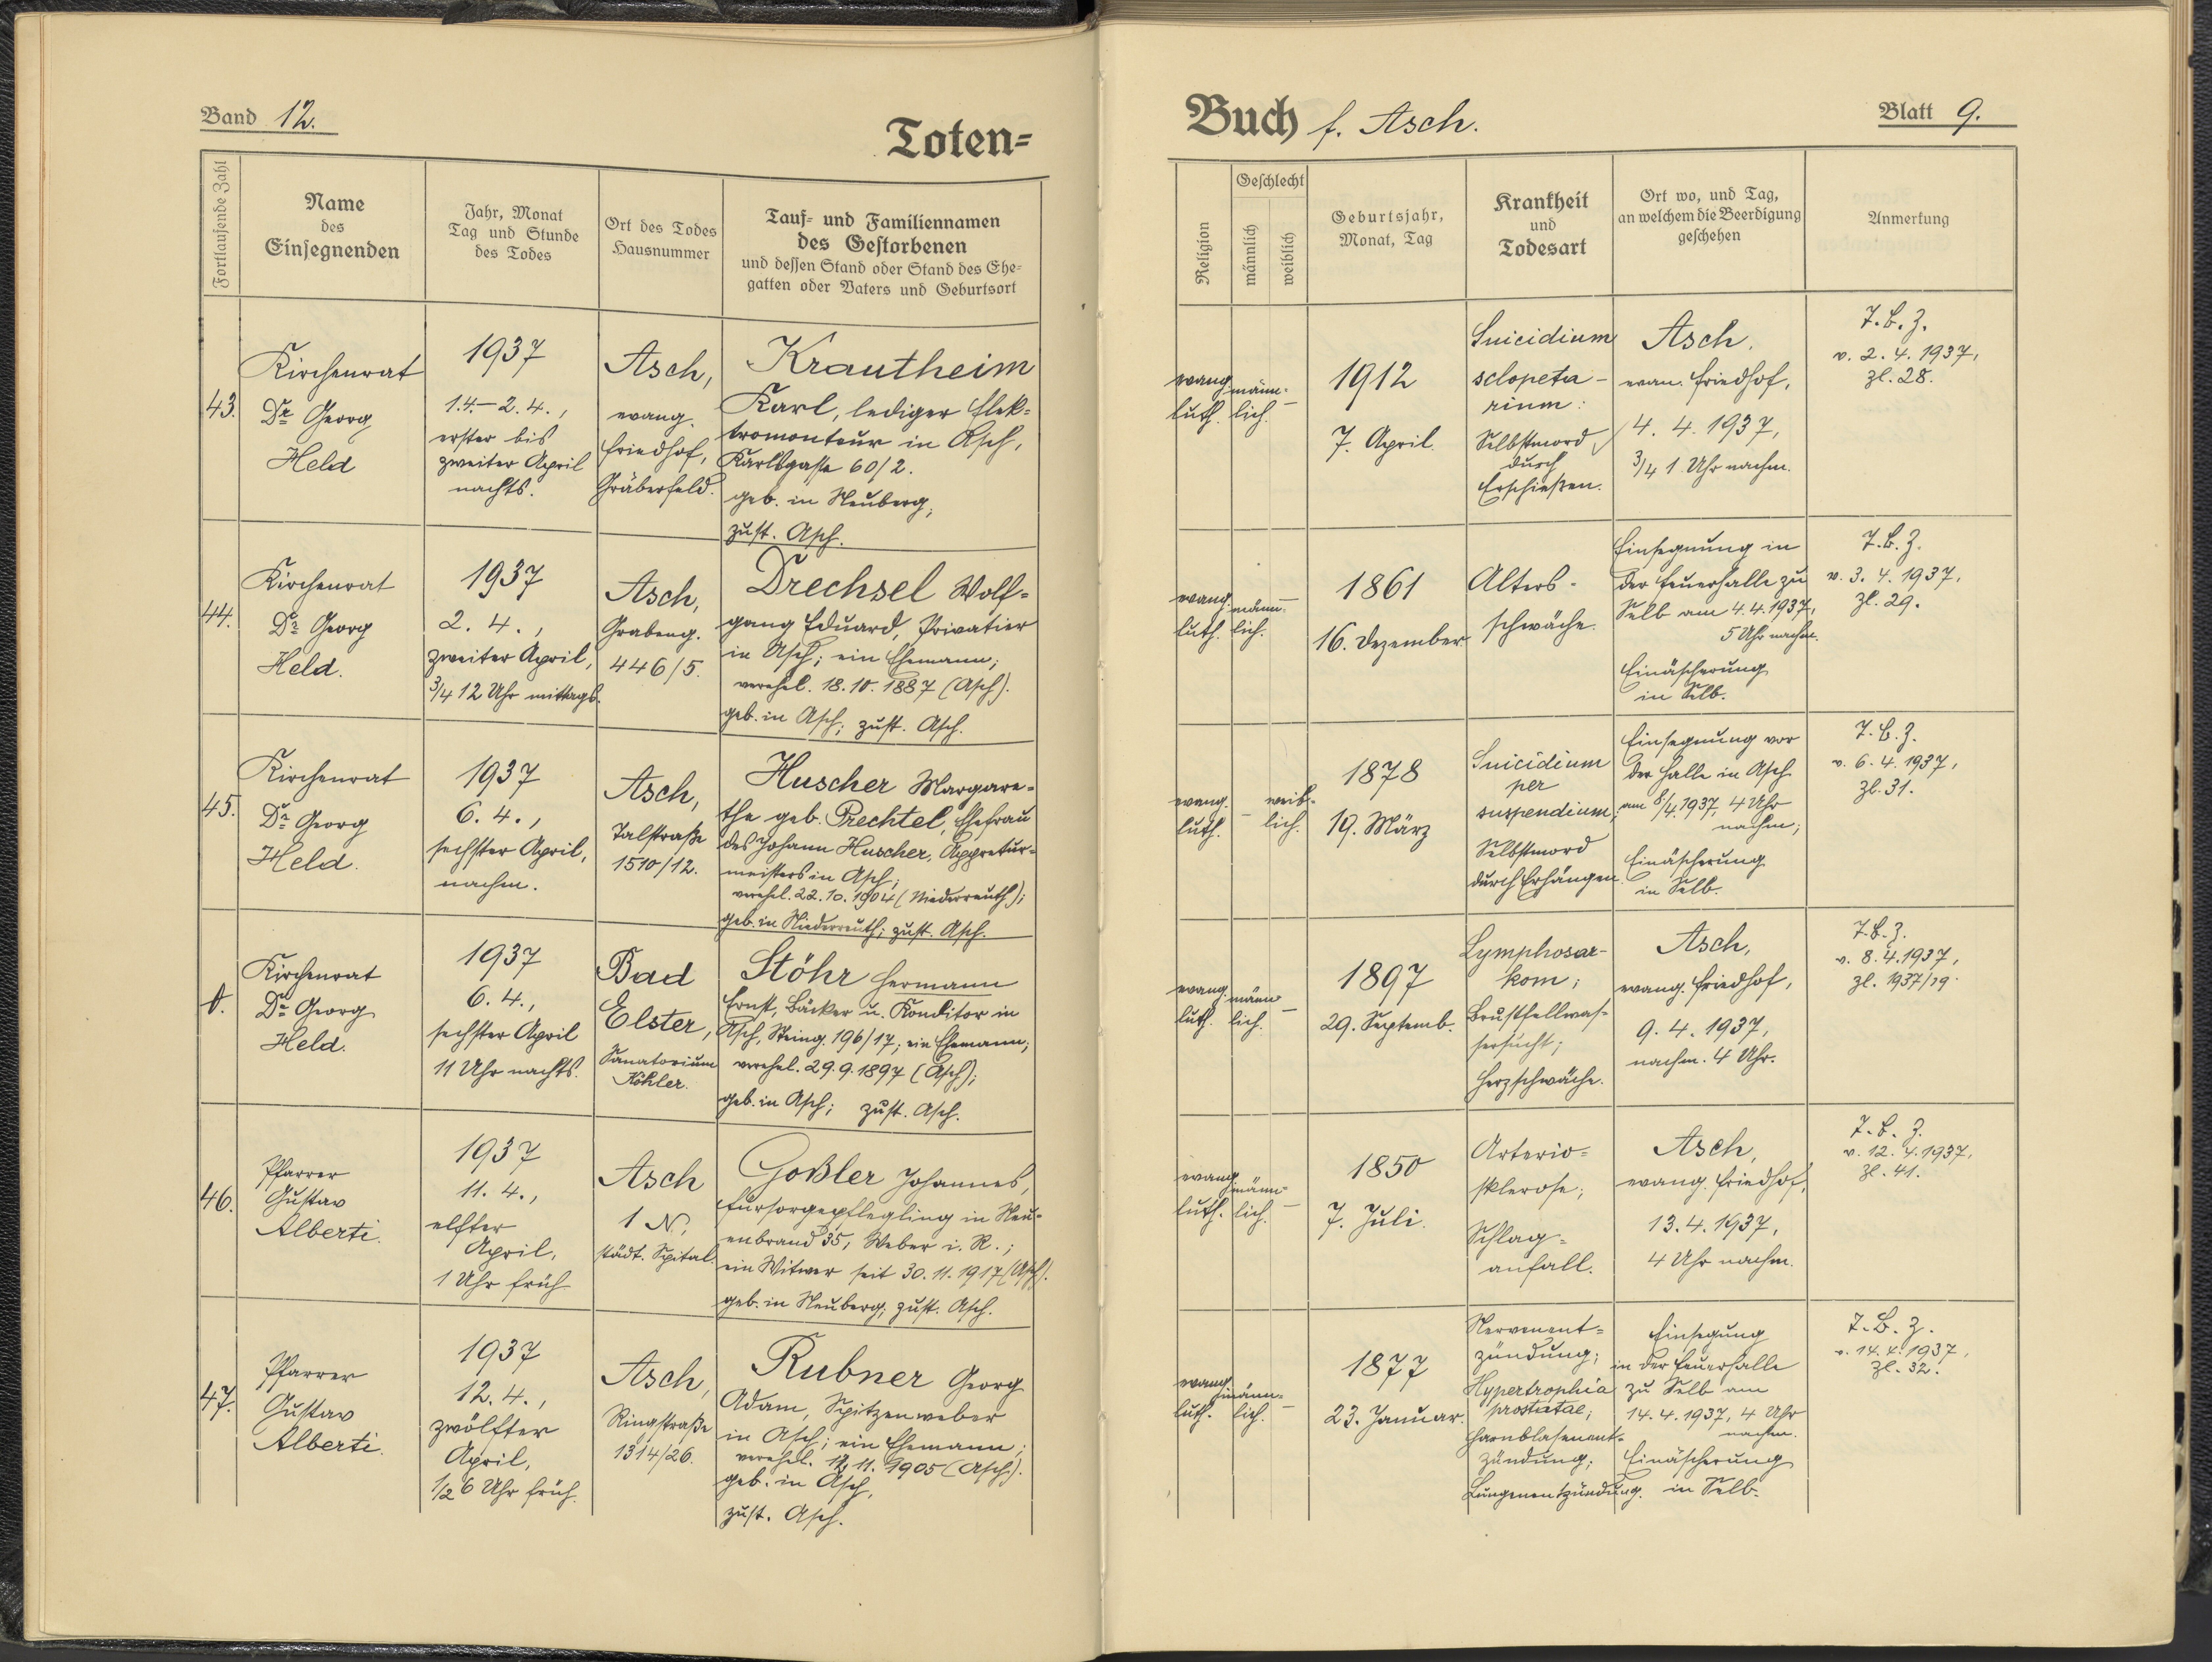 Band 12.
Toten=
Fortlaufende Zahl
Name
des
Einsegnenden
Jahr, Monat
Tag und Stunde
des Todes
Ort des Todes
Hausnummer
Tauf= und Familiennamen
des Gestorbenen
und dessen Stand oder Stand des Ehe=
gatten oder Vaters und Geburtsort
43.
Kirchenrat
Dr. Georg
Held
1937
1.4.–2.4.,
erster bis
zweiter April
nachts.
Asch,
evang.
Friedhof,
Gräberfeld.
Krautheim
Karl, lediger Elek=
tromonteur in Asch,
Karlsgasse 60/2.
geb. in Neuberg;
zust. Asch.
44.
Kirchenrat
Dr. Georg
Held.
1937
2. 4.,
zweiter April,
3/4 12 Uhr mittags.
Asch,
Grabeng.
446/5.
Drechsel Wolf=
gang Eduard, Privatier
in Asch; ein Ehemann;
verehel. 18.10.1887 (Asch).
geb. in Asch; zust. Asch.
45.
Kirchenrat
Dr. Georg
Held.
1937
6. 4.,
sechster April,
nachm.
Asch,
Talstraße
1510/12.
Huscher Margare=
the geb. Prechtel, Ehefrau
des Johann Huscher, Appretur=
meisters in Asch;
verehel. 22.10.1904 (Niederreuth);
geb. in Niederreuth; zust. Asch.
Kirchenrat
Dr. Georg
Held.
1937
6. 4.,
sechster April
11 Uhr nachts.
Bad
Elster,
Sanatorium
Köhler.
Stöhr Hermann
Ernst, Bäcker u. Konditor in
Asch, Steing. 196/17; ein Ehemann;
verehel. 29.9.1897 (Asch);
geb. in Asch; zust. Asch.
46.
Pfarrer
Gustav
Alberti.
1937
11. 4.,
elfter
April,
1 Uhr früh
Asch
1 N,
städt. Spital.
Goßler Johannes,
Fürsorgepflegling in Neu=
enbrand 35, Weber i. R.;
ein Witwer seit 30.11.1917 (Asch).
geb. in Neuberg; zust. Asch.
47.
Pfarrer
Gustav
Alberti.
1937
12. 4.,
zwölfter
April,
1/2 6 Uhr früh.
Asch,
Ringstraße
1314/26.
Rubner Georg
Adam, Spitzenweber
in Asch; ein Ehemann;
verehel. 12.11.1905 (Asch).
geb. in Asch,
zust. Asch.
Buch f. Asch.
Blatt 9.
Religion
Geschlecht
männlich
weiblich
Geburtsjahr,
Monat, Tag
Krankheit
und
Todesart
Ort wo, und Tag,
an welchem die Beerdigung
geschehen
Anmerkung
evang.
luth.
männ=
lich.
–
1912
7. April.
Suicidium
sclopeta–
rium:
Selbstmord
durch
Erschießen.
Asch.
evan. Friedhof,
4. 4. 1937,
3/4 1 Uhr nachm.
T. B. Z.
v. 2. 4. 1937,
Zl. 28.
evang.
luth.
männ=
lich.
–
1861
16. Dezember.
Alters=
schwäche.
Einsegnung in
der Feuerhalle zu
Selb am 4.4.1937,
5 Uhr nachm.
Einäscherung
in Selb.
T. B. Z.
v. 3. 4. 1937,
Zl. 29.
evang.
luth.
–
weib=
lich.
1878
19. März
Suicidium
per
suspendium;
Selbstmord
durch Erhängen.
Einsegnung vor
der Halle in Asch
am 8/4.1937, 4 Uhr
nachm;
Einäscherung
in Selb.
T. B. Z.
v. 6. 4. 1937,
Zl. 31.
evang.
luth.
männ
lich.
–
1897
29. Septemb.
Lymphosar–
kom;
Brustfellwas=
sersucht;
Herzschwäche.
Asch,
evang. Friedhof,
9. 4. 1937,
nachm. 4 Uhr.
T. B. Z.
v. 8. 4. 1937,
Zl. 1937/19.
evang.
luth.
männ=
lich.
–
1850
7. Juli.
Arterio=
sklerose;
Schlag=
anfall.
Asch,
evang. Friedhof,
13. 4. 1937,
4 Uhr nachm.
T. B. Z.
v. 12. 4. 1937,
Zl. 41.
evang.
luth.
männ=
lich.
–
1877
23. Januar.
Nervenent=
zündung;
Hypertrophia
prostatae;
Harnblasenent=
zündung;
Lungenentzündung.
Einsegung
in der Feuerhalle
zu Selb am
14.4.1937, 4 Uhr
nachm.
Einäscherung
in Selb.
T. B. Z.
v. 14. 4. 1937,
Zl. 32.